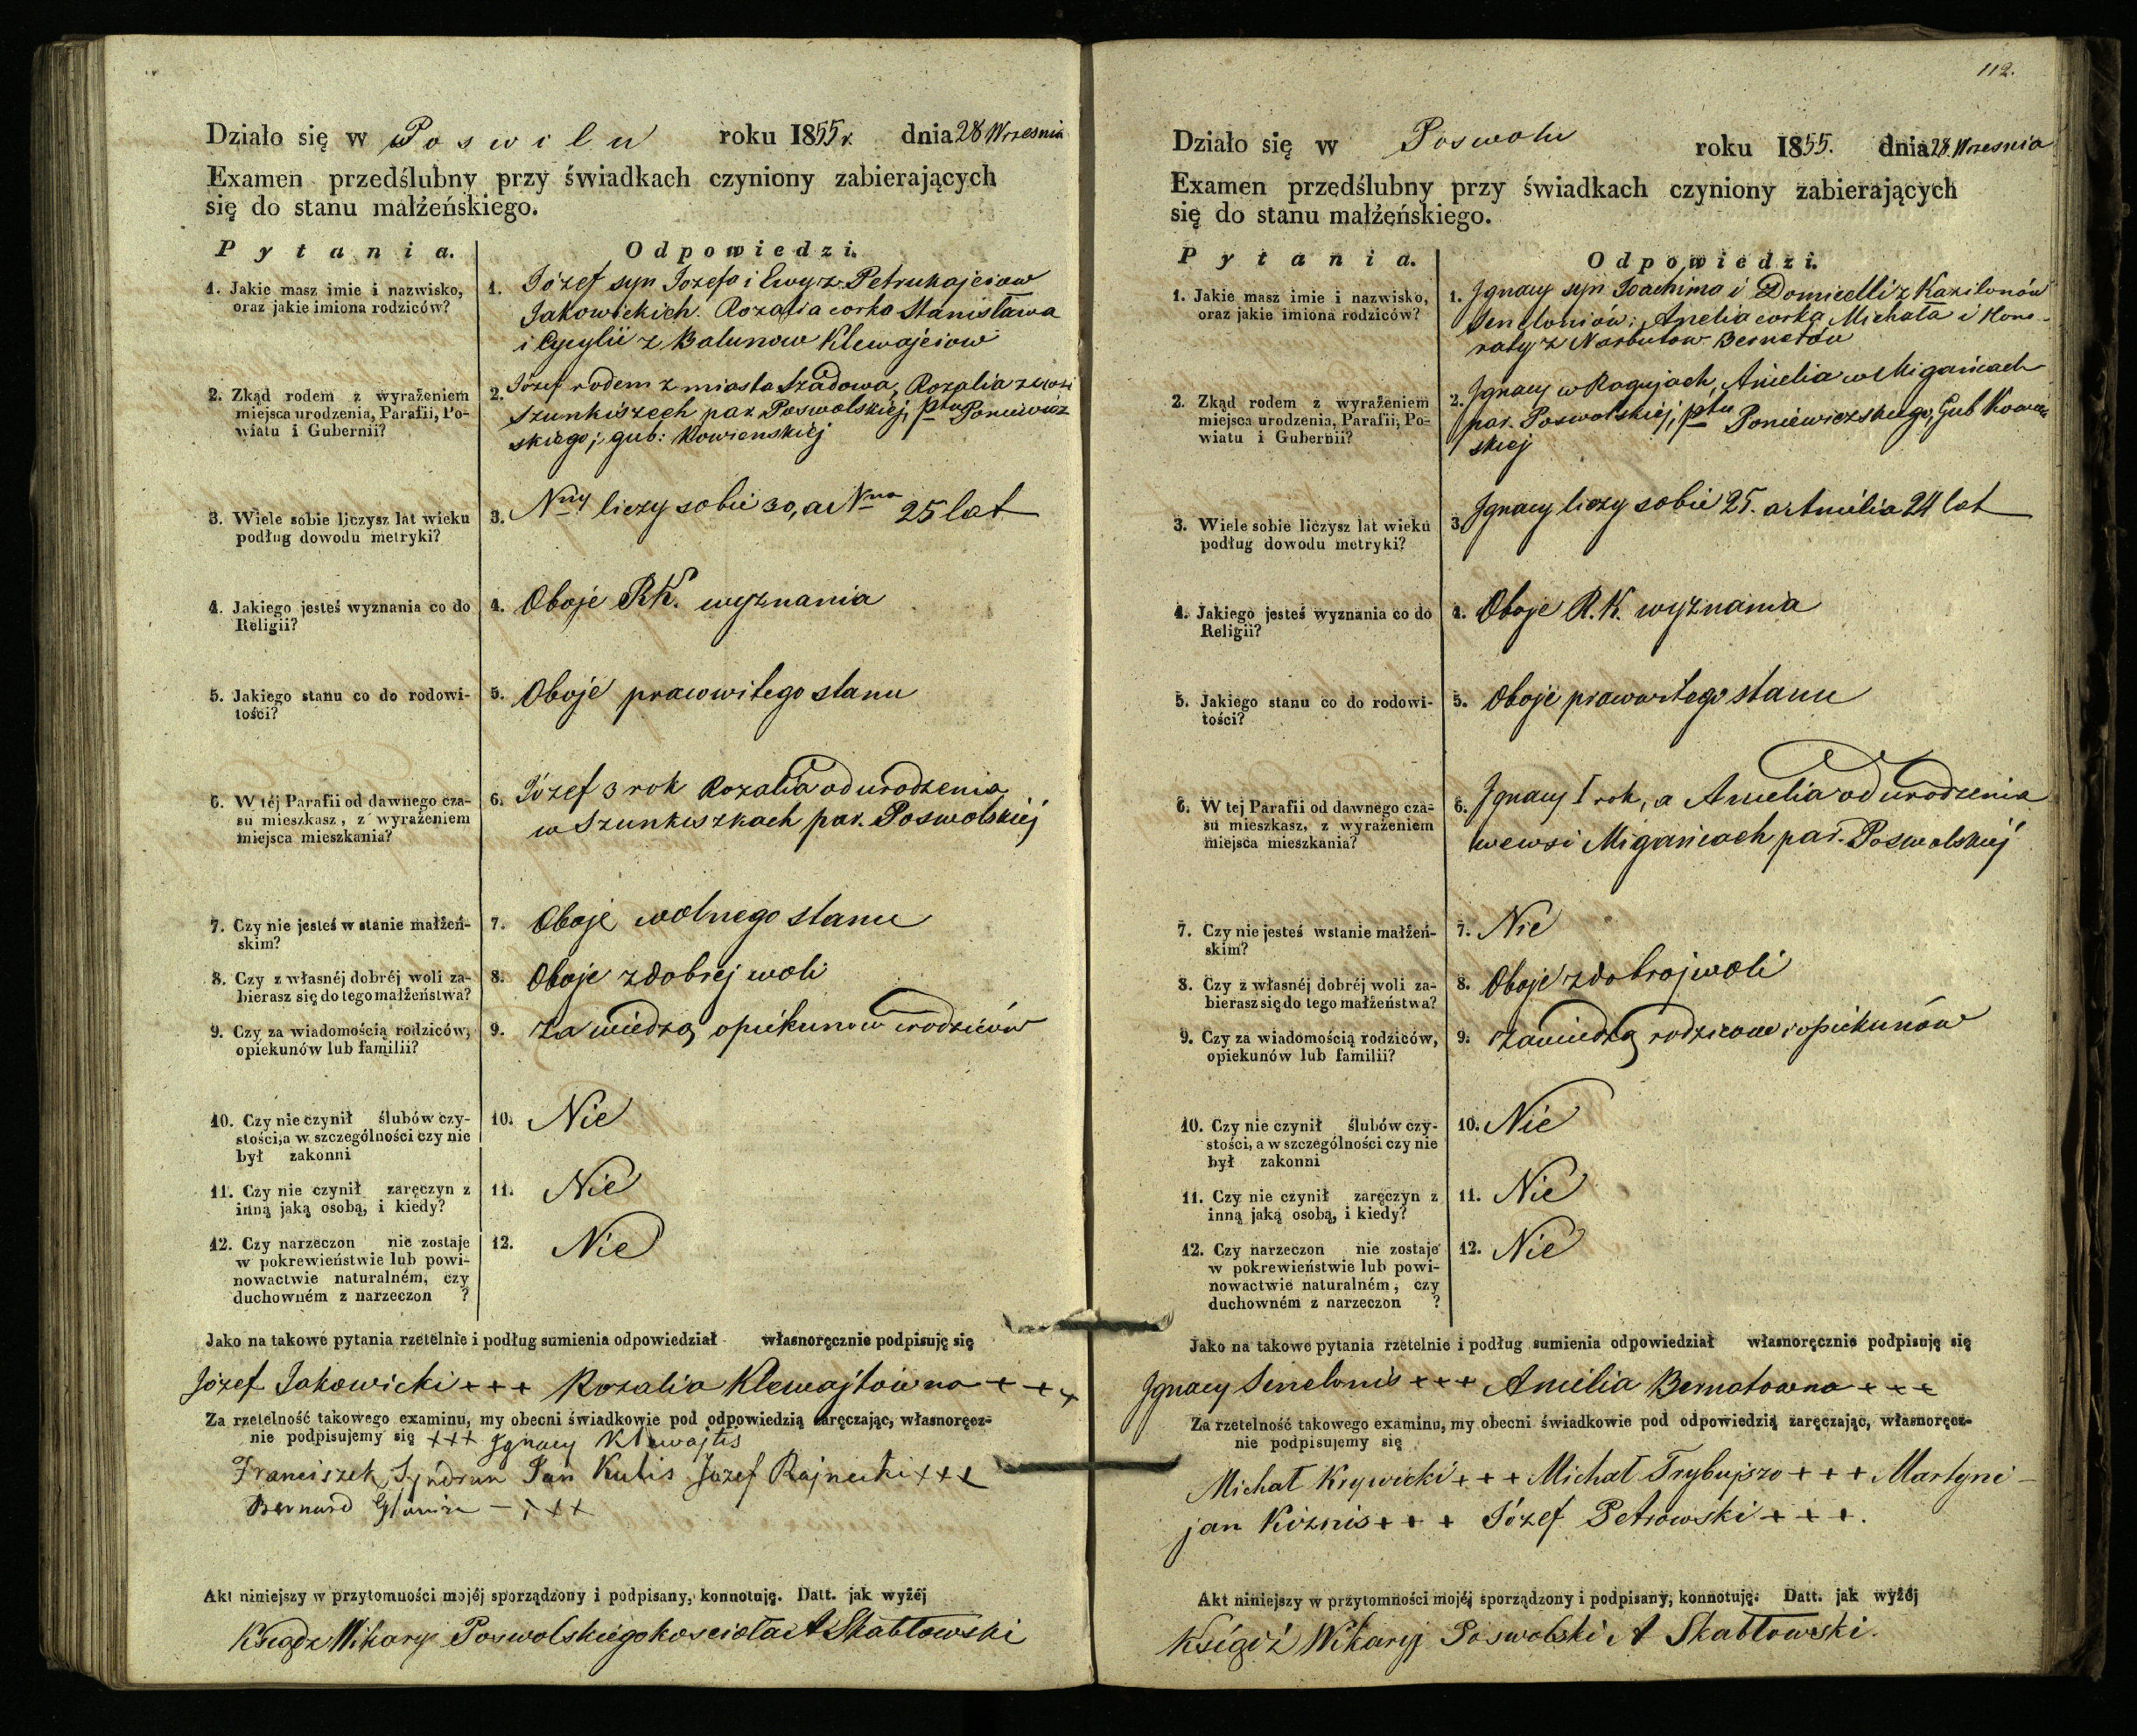 Działo się w Poswilu roku 1855 r. dnia 28 Wrzesnia
Examen przedślubny przy świadkach czyniony zabierających
się do stanu małżeńskiego.
Pytania. Odpowiedzi.
1. Jakie masz imie i nazwisko,
oraz jakie imiona rodziców?
1. Józef syn Jozefa i Ewy z Petrukajciow
Jakowickich. Rozalia corka Stanisława
i Cycylii z Balunow Klewajciow
2. Zkąd rodem z wyrażeniem
miejsca urodzenia, Parafii, Po-
wiatu i Gubernii?
2. Józef rodem z miasta Szadowa, Rozalia z wsi
Szunkiszech par. Poswolskiej, ptu Poniewież
skiego; gub: Kowienskiej
3. Wiele sobie liczysz lat wieku
podług dowodu metryki?
3. Nny liczy sobie 30, a Nna 25 lat
4. Jakiego jesteś wyznania co do
Religii?
4. Oboje RK. wyznania
5. Jakiego stanu co do rodowi-
tości?
5. Oboje prawowitego stanu
6. W téj Parafii od dawnego cza-
su mieszkasz, z wyrażeniem
miejsca mieszkania?
6. Józef 3 rok Rozalia od urodzenia
w Szunkiszkach par. Poswolskiéj
7. Czy nie jesteś w stanie małżeń-
skim?
7. Oboje wolnego stanu
8. Czy z własnéj dobréj woli za-
bierasz się do tego małżeństwa?
8. Oboje z dobrej woli
9. Czy za wiadomością rodziców,
opiekunów lub familii?
9. Za wiedzą opiekunow i rodziców
10. Czy nie czynił ślubów czy-
stości, a w szczególności czy nie
był zakonni
10. Nie
11. Czy nie czynił zaręczyn z
inną jaką osobą, i kiedy?
11. Nie
12. Czy narzeczon nie zostaje
w pokrewieństwie lub powi-
nowactwie naturalném, czy
duchowném z narzeczon ?
12. Nie
Jako na takowe pytania rzetelnie i podług sumienia odpowiedział własnoręcznie podpisuję się
Józef Jakowicki +++ Rozalia Klewajtówna +++
Za rzetelność takowego examinu, my obecni świadkowie pod odpowiedzią zaręczając, własnoręcz-
nie podpisujemy się +++ Jgnacy Klewajtis
Franciszek Jan Kulis Jozef Rajnecki +++
Bernard - +++
Akt niniejszy w przytomności mojéj sporządzony i podpisany, konnotuję. Datt. jak wyżéj
Ksiądz Wikary Poswolskiego kosciola A Skabłowski
112.
Działo się w Poswolu roku 1855. dnia 28. Wrzesnia
Examen przedślubny przy świadkach czyniony zabierających
się do stanu małżeńskiego.
Pytania. Odpowiedzi.
1. Jakie masz imie i nazwisko,
oraz jakie imiona rodziców?
1. Jgnacy syn Joachima i Domicelli z Kazilonów
Seneloniów; Anelia corka Michała i Hono-
raty z Narbutow Bernatów
2. Zkąd rodem z wyrażeniem
miejsca urodzenia, Parafii, Po-
wiatu i Gubernii?
2. Jgnacy w Ragujach, Amelia w Migańcach
par. Poswolskiej, ptu Poniewiezskiego, Gub Kowień
skiej
3. Wiele sobie liczysz lat wieku
podług dowodu metryki?
3. Jgnacy liczy sobie 25. a Amelia 24 lat
4. Jakiego jesteś wyznania co do
Religii?
4. Oboje R.K. wyznania
5. Jakiego stanu co do rodowi-
tości?
5. Oboje prawowitego stanu
6. W tej Parafii od dawnego cza-
su mieszkasz, z wyrażeniem
miejsca mieszkania?
6. Jgnacy I rok, a Amelia od urodzenia
we wsi Migańcach par. Poswolskiéj
7. Czy nie jesteś w stanie małżeń-
skim?
7. Nie
8. Czy z własnéj dobréj woli za-
bierasz się do tego małżeństwa?
8. Oboje z dobrej woli
9. Czy za wiadomością rodziców,
opiekunów lub familii?
9. Za wiedzą rodzicow i opiekunów
10. Czy nie czynił ślubów czy-
stości, a w szczególności czy nie
był zakonni
10. Nie
11. Czy nie czynił zaręczyn z
inną jaką osobą, i kiedy?
11. Nie
12. Czy narzeczon nie zostaje
w pokrewieństwie lub powi-
nowactwie naturalném, czy
duchowném z narzeczon ?
12. Nie
Jako na takowe pytania rzetelnie i podług sumienia odpowiedział własnoręcznie podpisuję się
Jgnacy Senelonis +++ Amelia Bernatowna +++
Za rzetelność takowego examinu, my obecni świadkowie pod odpowiedzią zaręczając, własnoręcz-
nie podpisujemy się
Michał Krywicki +++ Michał Trybujszo +++ Martyni-
jan Kiznis +++ Józef Petrowski +++.
Akt niniejszy w przytomności mojéj sporządzony i podpisany, konnotuję. Datt. jak wyżéj
Ksiądz Wikaryj Poswolski A Skabłowski.